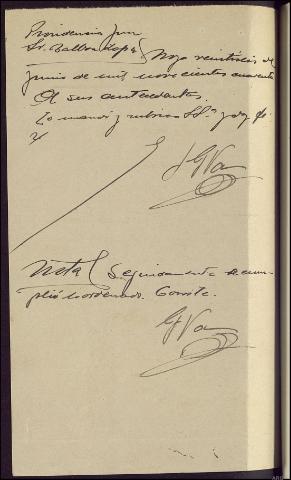 Providencia Juez
Sr. Balboa López Noya veintiseis de
junio de mil novecientos cuarenta
A sus antecedentes.
Lo mandó y rubrica SSª. doy fe
Nota Seguidamente se cum-
plió lo ordenado. Conste.